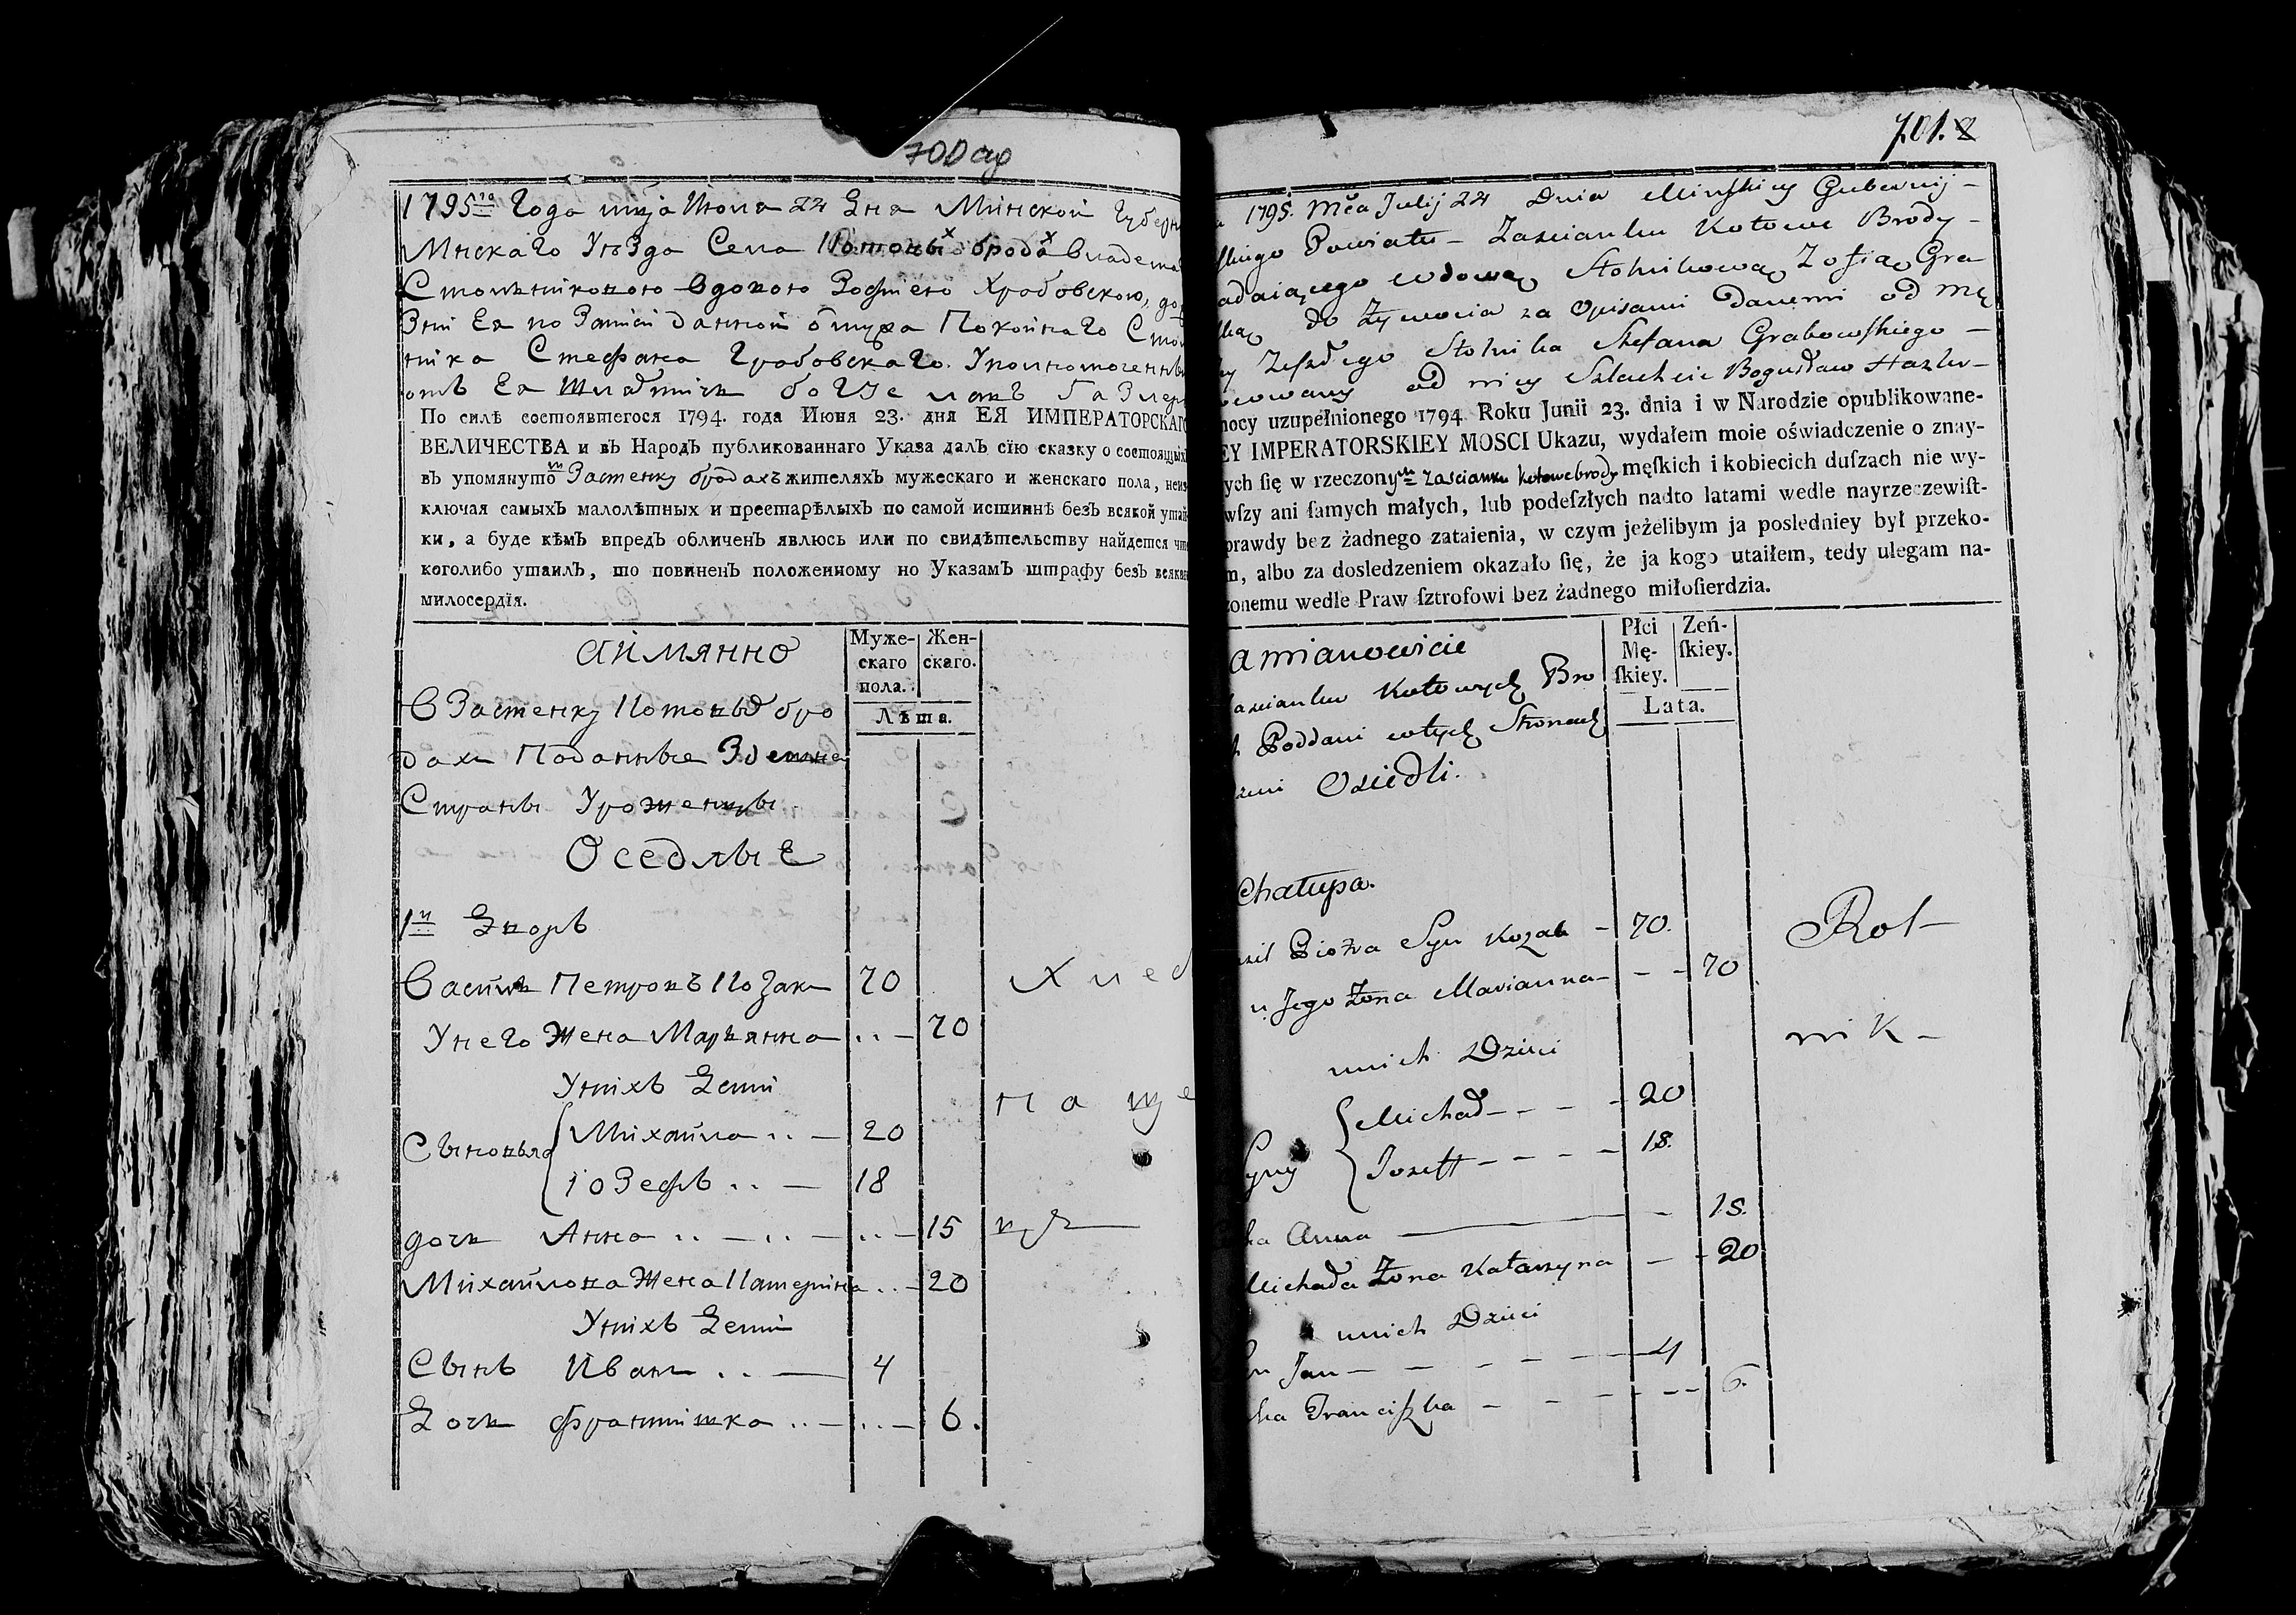 700 об
1795го Года мца Июля 22 Дня Минской Губерн
Минскаго Уѣзда Села Котовы броды владема
Стольниковою вдовою Зофиею Храбовскою, до
Зни Ея по Записи данной отмужа Покойнаго Стол
ника Стефана Грабовскаго. Уполномоченны
отъ Ея Шляхтичь
По силѣ состоявшегося 1794. года Июня 23. дня ЕЯ ИМПЕРАТОРСКАГО
ВЕЛИЧЕСТВА и въ Народъ публикованнаго Указа далъ сїю сказку о состоящихъ
въ упомянутомъ Застенку бродахъ жителяхъ мужескаго и женскаго пола, неиз
ключая самыхъ малолѣтныхъ и престарѣлыхъ по самой истиннѣ безъ всякой утай
ки, а буде кѣмъ впредъ обличенъ явлюсь или по свидѣтельству найдется что
коголибо утаилъ, то повиненъ положенному по Указамъ штрафу безъ всякаго
милосердїя.
аимянно
Муже-
скаго
пола.
Жен-
скаго.
Лѣта.
В Застенку Котовыхъ бро
дахъ Поданные Здешне
Страны Уроженцы
Оседлые
1й Дворъ
Василь Петровъ Козакъ 70
Унего Жена Марьянна 70
Унихъ Дети
Сыновья Михайла 20
Іозефъ 18
дочь Анна 15
Михайлова Жена Катерина 20
Унихъ Дети
Сынъ Иванъ 4
Дочь францишка 6.
Хлеб
паше
цъ
701.
1795. Mca Julij 22 Dnia Minskiey Gubernij
skiego Powiatu Zascianku Kotowe Brody
adaiącego wdową Stolnikową Zofią Gra
ską do Żywocia za Opisami danemi od Mę
Zeszłego Stolnika Stefana Grabowskiego
cowany od niey Szlachcic Bogusław Hazler
mocy uzupełnionego 1794 Roku Junii 23. dnia i w Narodzie opublikowane-
EY IMPERATORSKIEY MOSCI Ukazu, wydałem moie oświadczenie o znay-
ych się w rzeczonym Zascianku Kotowebrody męſkich i kobiecich duſzach nie wy-
wſzy ani ſamych małych, lub podeſzłych nadto latami wedle nayrzeczewiſt-
prawdy bez żadnego zataienia, w czym jeżelibym ja posledniey był przeko-
m, albo za dosledzeniem okazało ſię, że ja kogo utaiłem, tedy ulegam na-
zonemu wedle Praw ſztrofowi bez żadnego miłoſierdzia.
amianowicie
Płci
Mę-
ſkiey.
Zeń-
ſkiey.
Lata.
ascianku Kotowych Bro
Poddani wtych Stronach
zeni Osiedli.
Chałupa.
zil Piotra Syn Kozak 70.
u Jego Żona Marianna 70
unich Dzieci
Syny Michał 20
Jozeff 18.
ka Anna 15.
Michała Żona Katarzyna 20
unich Dzieci
n Jan 4
ka Franciszka 6.
Rol
nik